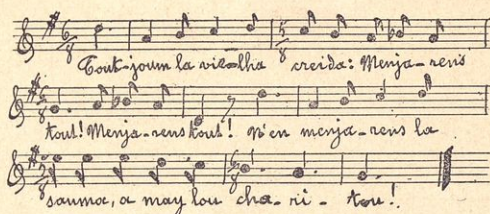 Tout-joum la vielha creida: Menja-rens
tout! Menja-rens tout! N'en menja-rens la
sauma, a may lou cha-ri-tou!